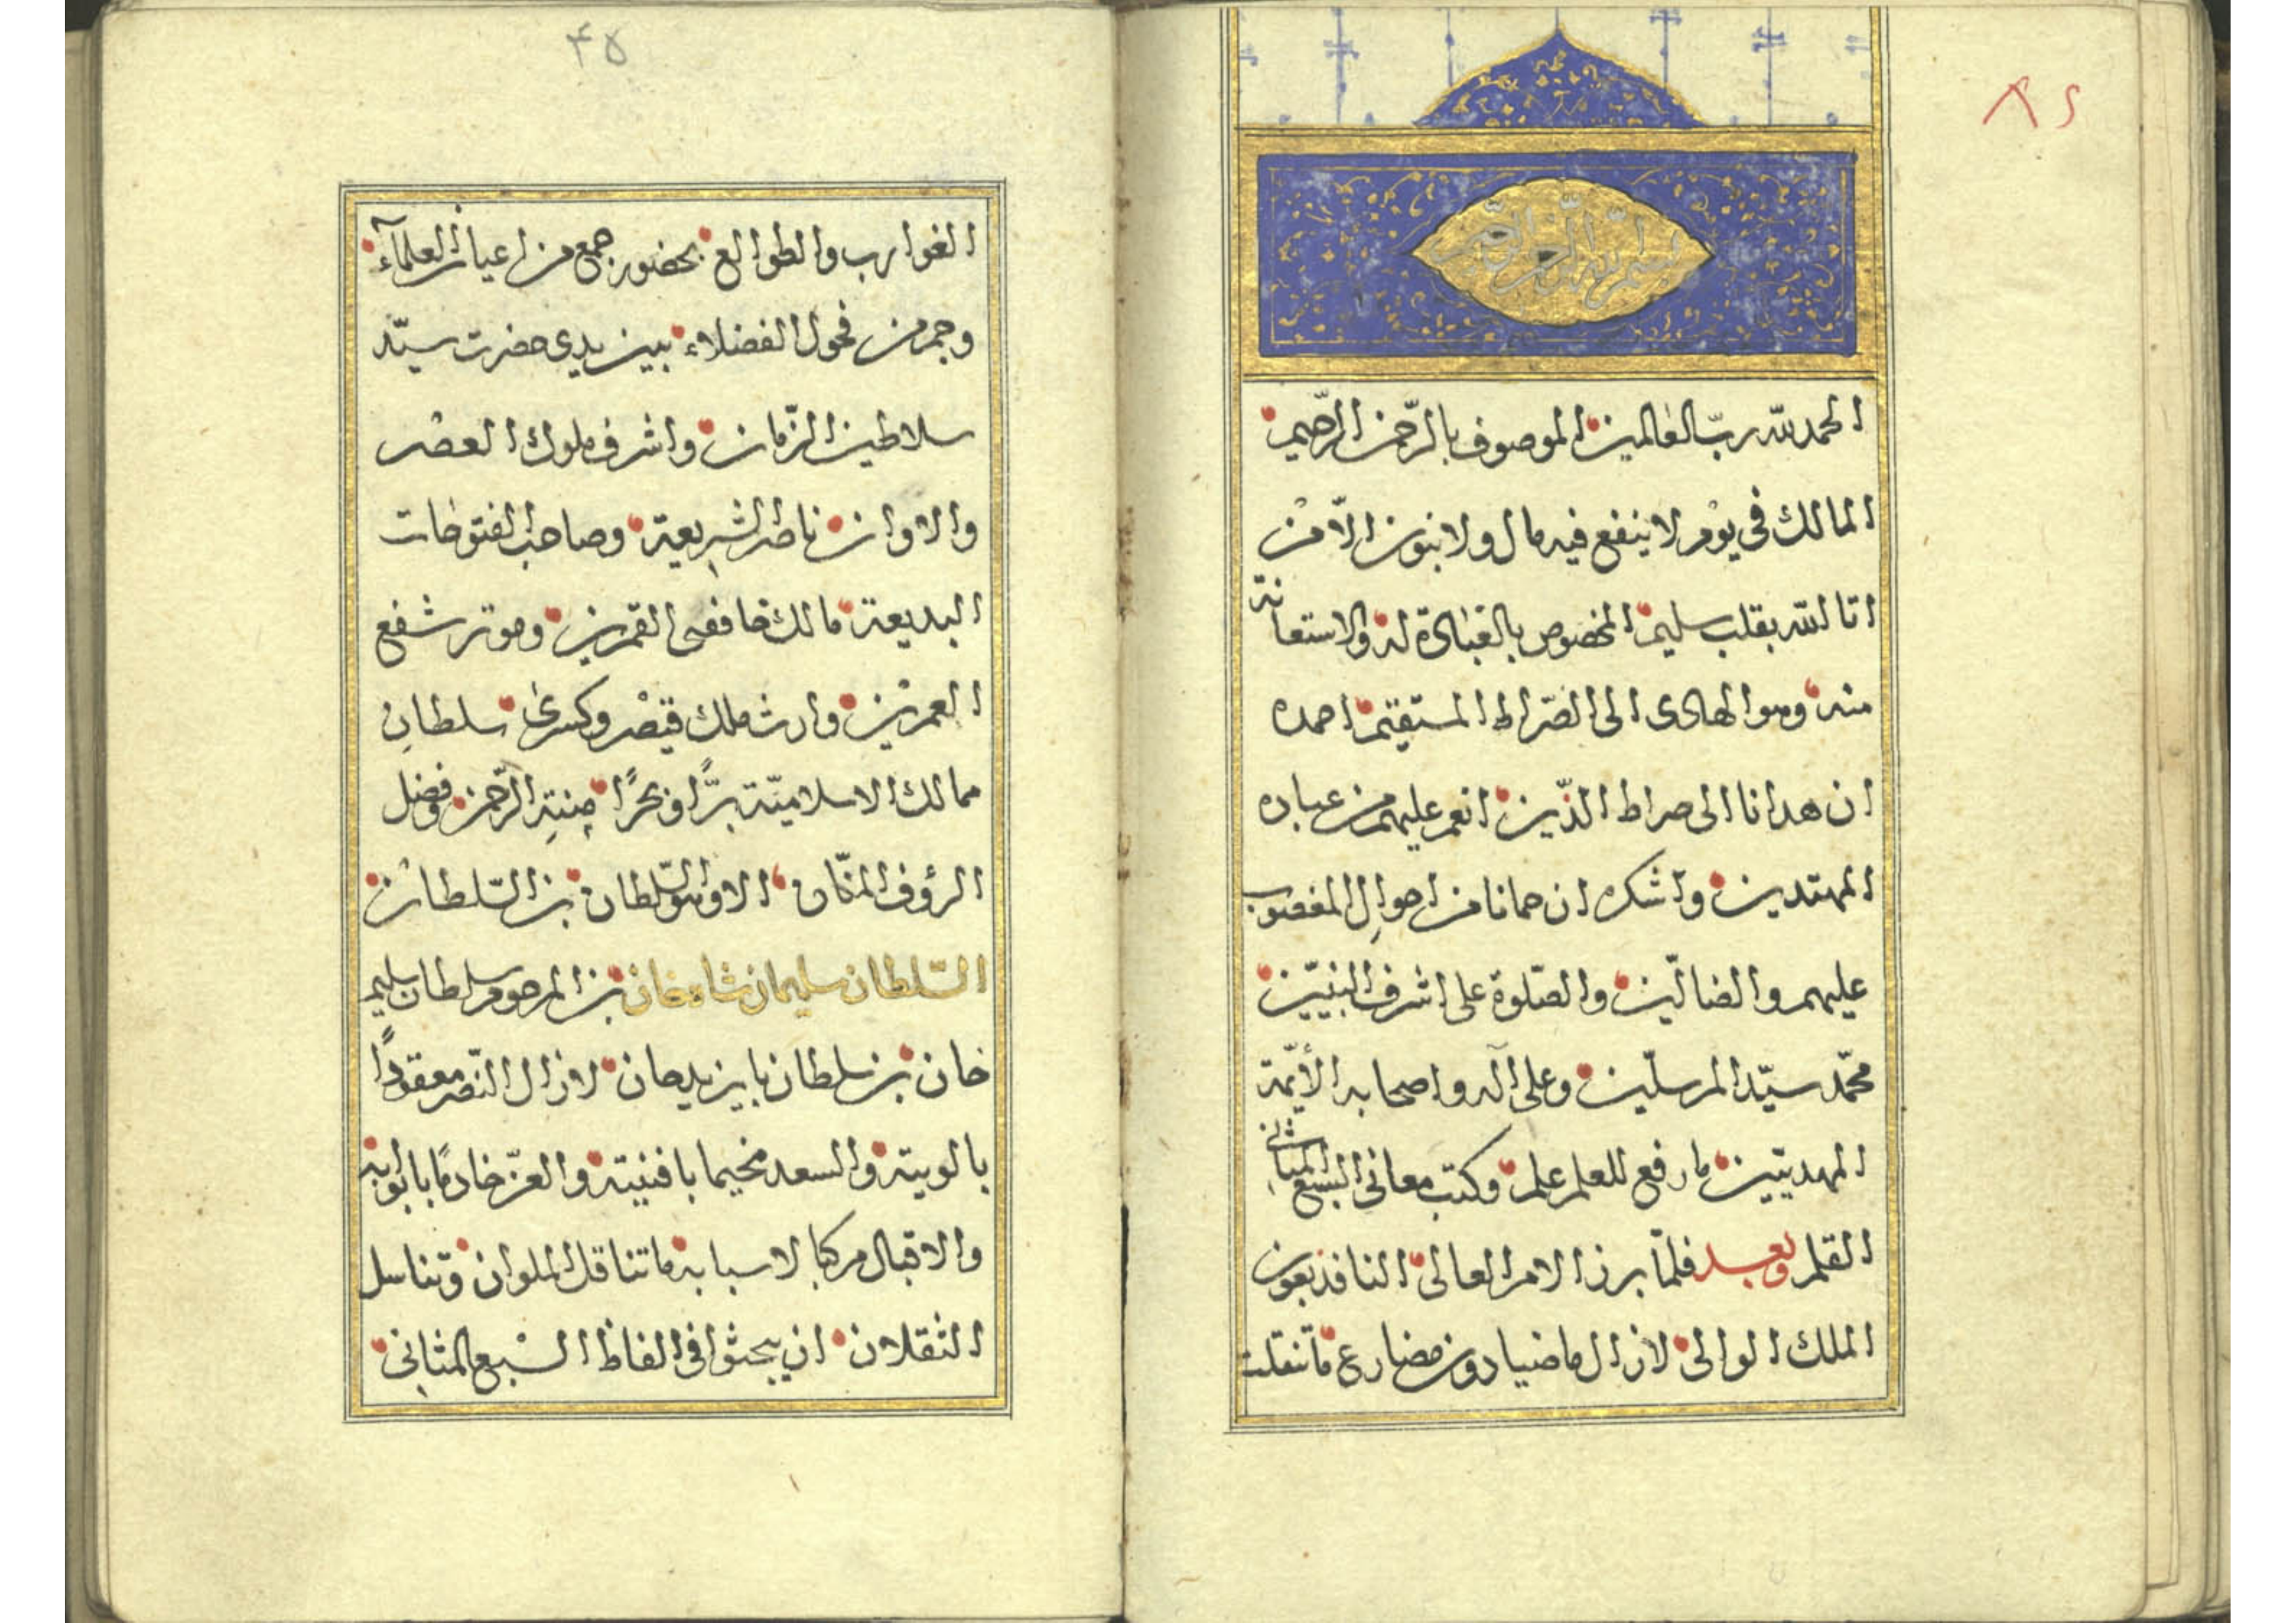 ٨٦
بسم الله الرحمن الرحيم
الحمد لله ربّ العالمين الموصوف بالرّحمن الرّحيم
المالك في يوم لا ينفع فيه مال ولا بنون الّا من
اتا الله بقلب سليم المخصوص بالعبادة له والاستعانة
منه وهو الهادى الى الصّراط المستقيم احمده
ان هدانا الى صراط الذّين انعم عليهم من عباده
المهتدين واشكره ان حمانا من احوال المغضوب
عليهم والضالّين والصّلوة على اشرف النبيّين
محمّد سيّد المرسلّين وعلى آله واصحابه الأئمّة
المهديّين ما رفع للعلم علم وكتب معانى السبع المثاني
القلم وبعد فلمّا برز الامر العالى النافذ بعون
الملك الوالى لازال ماضيا دون مضارع ما تنقلت
٤٥
الغوارب والطوالع بحضور جمع من اعيان العلمآء
وجم من فحول الفضلاء بين يدى حضرت سيّد
سلاطين الزّمان واشرف ملوك العصر
والاوان ناصر الشريعة وصاحب الفتوحات
البديعة مالك خافقى القمرين وموتر شفع
العمرين وارث ملك قيصر وكسرى سلطان
ممالك الاسلاميّة برًّا وبحرًا بمنة الرّحمن وفضل
الرؤف المنّان الا وهو السّلطان بن السّلطان
السّلطان سليمان شاه خان بن المرحوم سلطان سليم
خان بن سلطان بايزيد خان لازال النّصر معقودًا
بالويته والسعد مخيما بافنيته والعزّ خادمًا بابوابه
والاقبال مركبا لاسبابه ما تناقل الملوان وتناسل
الثقلان ان يبحثوا فى الفاظ السّبع المثانى